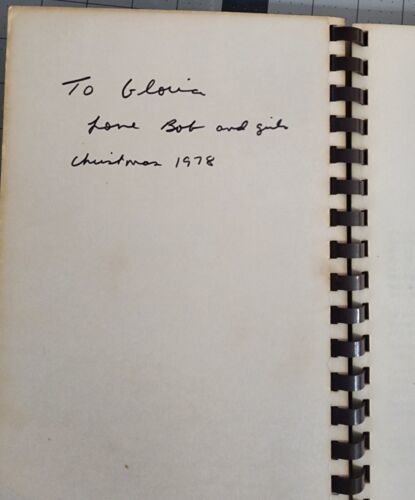 To Gloria
Love Bob and girls
Christmas 1978